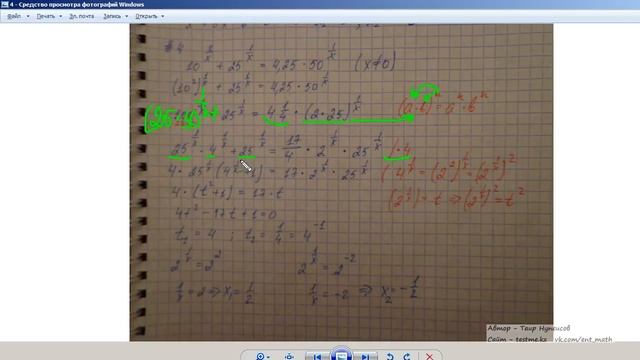 4 - Средство просмотра фотографий Windows
Файл Печать Эл. почта Запись Открыть
#4
10^(2/x) + 25^(1/x) = 4,25 · 50^(1/x) (x≠0)
(10²)^(1/x) + 25^(1/x) = 4,25 · 50^(1/x)
25^(1/x) = 4 1/4 · (2·25)^(1/x)
(a·b)^n = a^n · b^n
25^(1/x) · 4^(1/x) + 25^(1/x) = 17/4 · 2^(1/x) · 25^(1/x) | ·4
= 17 · 2^(1/x) · 25^(1/x)
(4^(1/x) = (2²)^(1/x) = (2^(1/x))²
4 · (t²+1) = 17 · t
(2^(1/x)) = t ⇒ (2^(1/x))² = t²
4t² - 17t + 4 = 0
t₁ = 4 ; t₂ = 1/4 = 4^(-1)
2^(1/x) = 2² 2^(1/x) = 2^(-2)
1/x = 2 ⇒ x₁ = 1/2 1/x = -2 ⇒ x₂ = -1/2
Автор - Таир Нуркисов
Сайт - testme.kz vk.com/ent_math